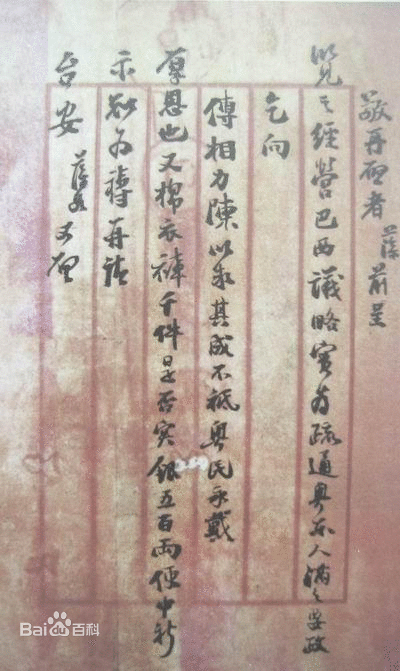 敬再啟者 前呈
覽之經營巴西議略實為疏通粵東人滿之要政
乞向
傅相力陳以求其成不祗粵民永戴
厚恩也又棉衣褲千件是否实銀五百兩便中祈
示知為禱再請
台安 又啟
Bai百科